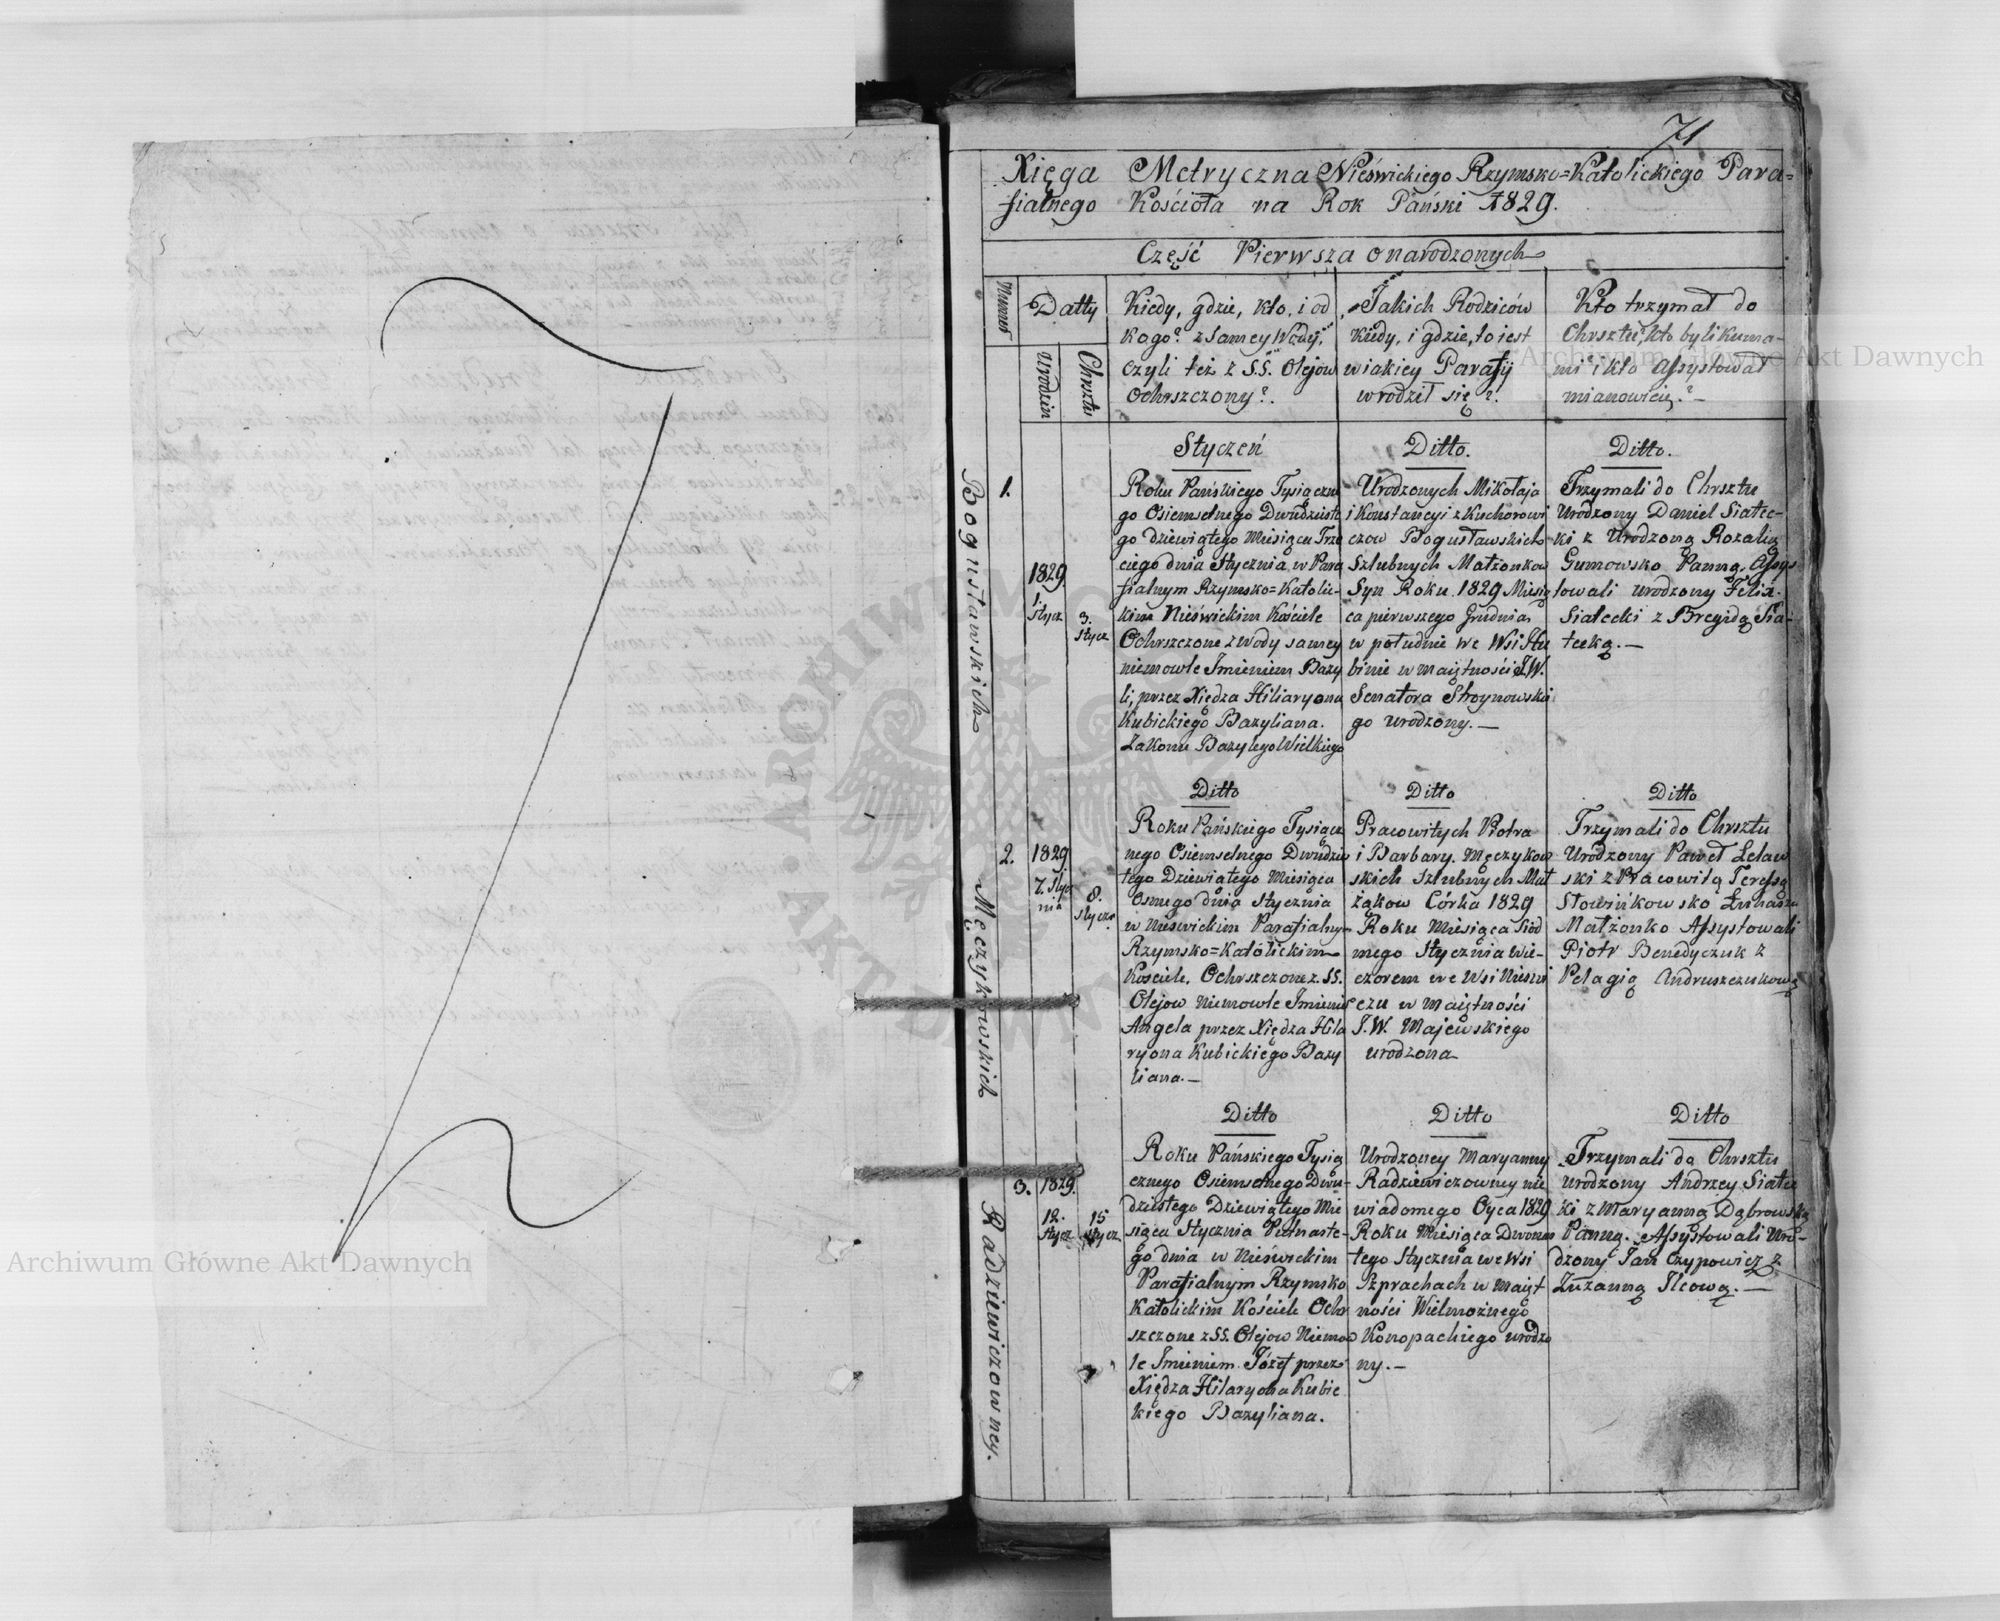 71
Xięga Metryczna Nieświckiego Rzymsko=Katolickiego Para=
fialnego Kościoła na Rok Pański 1829.
Część Pierwsza o narodzonych
Numer
Datty
Urodzin
Chrztu
Kiedy, gdzie, kto, i od
kogo? z samey Wody,
czyli też z S.S. Olejow
Ochrszczony?.
Jakich Rodziców
kiedy, i gdzie, to iest
w iakiey Parafij
wrodził się?.
Kto trzymał do
Chrsztu, kto byli kuma-
mi i kto Assystował
mianowicie?.—
Bogusławskich
1.
1829
1.
Stycz
3.
Stycz
Styczeń
Roku Pańskiego Tysiączne
go Osiemsetnego Dwudzieste
go Dziewiątego Miesiąca Trze
ciego dnia Stycznia w Para
fialnym Rzymsko=Katolic-
kim Nieświckim Kościele
Ochrszczone z wody samey
niemowle Imieniem Bazy
li, przez Xiędza Hiliaryona
Kubickiego Bazyliana.
Zakonu Bazylego Wielkiego
Ditto.
Urodzonych Mikołaja
i Konstancyi z Kuchorowi
czow Bogusławskich
Szlubnych Małżonkow
Syn Roku 1829 Miesią
ca pierwszego Grudnia
w południe we Wsi Hu
binie w maiętności J.W.
Senatora Stroynowskie
go urodzony.—
Ditto.
Trzymali do Chrsztu
Urodzony Daniel Siatec-
ki z Urodzoną Rozalią
Gumowsko Panną, Assys
towali urodzony Felix
Siatecki z Brygidą Sia-
tecką.—
Męczykowskich
2.
1829
7. Stycz
nia
8.
Stycz.
Ditto
Roku Pańskiego Tysiącz
nego Osiemsetnego Dwudzies
tego Dziewiątego Miesiąca
Osmego dnia Stycznia
w Nieświckim Parafialny-
Rzymsko=Katolickim
Kościele. Ochrszczone z. SS.
Olejow Niemowle Imienie
Angela przez Xiędza Hila
ryona Kubickiego Bazy
liana.—
Ditto
Pracowitych Piotra
i Barbary. Męczykow
skich Szlubnych Mał
żąkow Córka 1829
Roku Miesiąca Siód
mego Stycznia Wie-
czorem we Wsi Nieswi
czu w maiętności
J.W. Majewskiego
urodzona
Ditto
Trzymali do Chrsztu
Urodzony Paweł Zelaw
ski z Pracowitą Teressą
Słowińkowsko Łukasza
Małżonko Assystowali
Piotr Benedyczuk z
Pelagią Andruszczukową
Radziewiczowney.
3.
1829.
12.
Stycz
15
Stycz
Ditto
Roku Pańskiego Tysią
cznego Osiemsetnego Dwu-
dziestego Dziewiątego Mie
siąca Stycznia Pietnaste-
go dnia w Nieświckim
Parafialnym Rzymsko
Katolickim Kościele Ochr
szczone z SS. Olejow Niemow
le Imieniem Józef przez
Xiędza Hilaryona Kubic
kiego Bazyliana.
Ditto
Urodzoney Maryanny
Radziewiczowny nie
wiadomego Oyca 1829
Roku Miesiąca Dwonas
tego Stycznia we Wsi
Szprachach w maięt
ności Wielmożnego
Konopackiego urodzo
ny.—
Ditto
Trzymali do Chrsztu
urodzony Andrzey Siatec
ki z Maryanną Dąbrowską
Panną. Assystowali Uro-
dzony Jan Czypowicz z
Zuzanną Ilcową.—
Archiwum Główne Akt Dawnych
Archiwum Główne Akt Dawnych